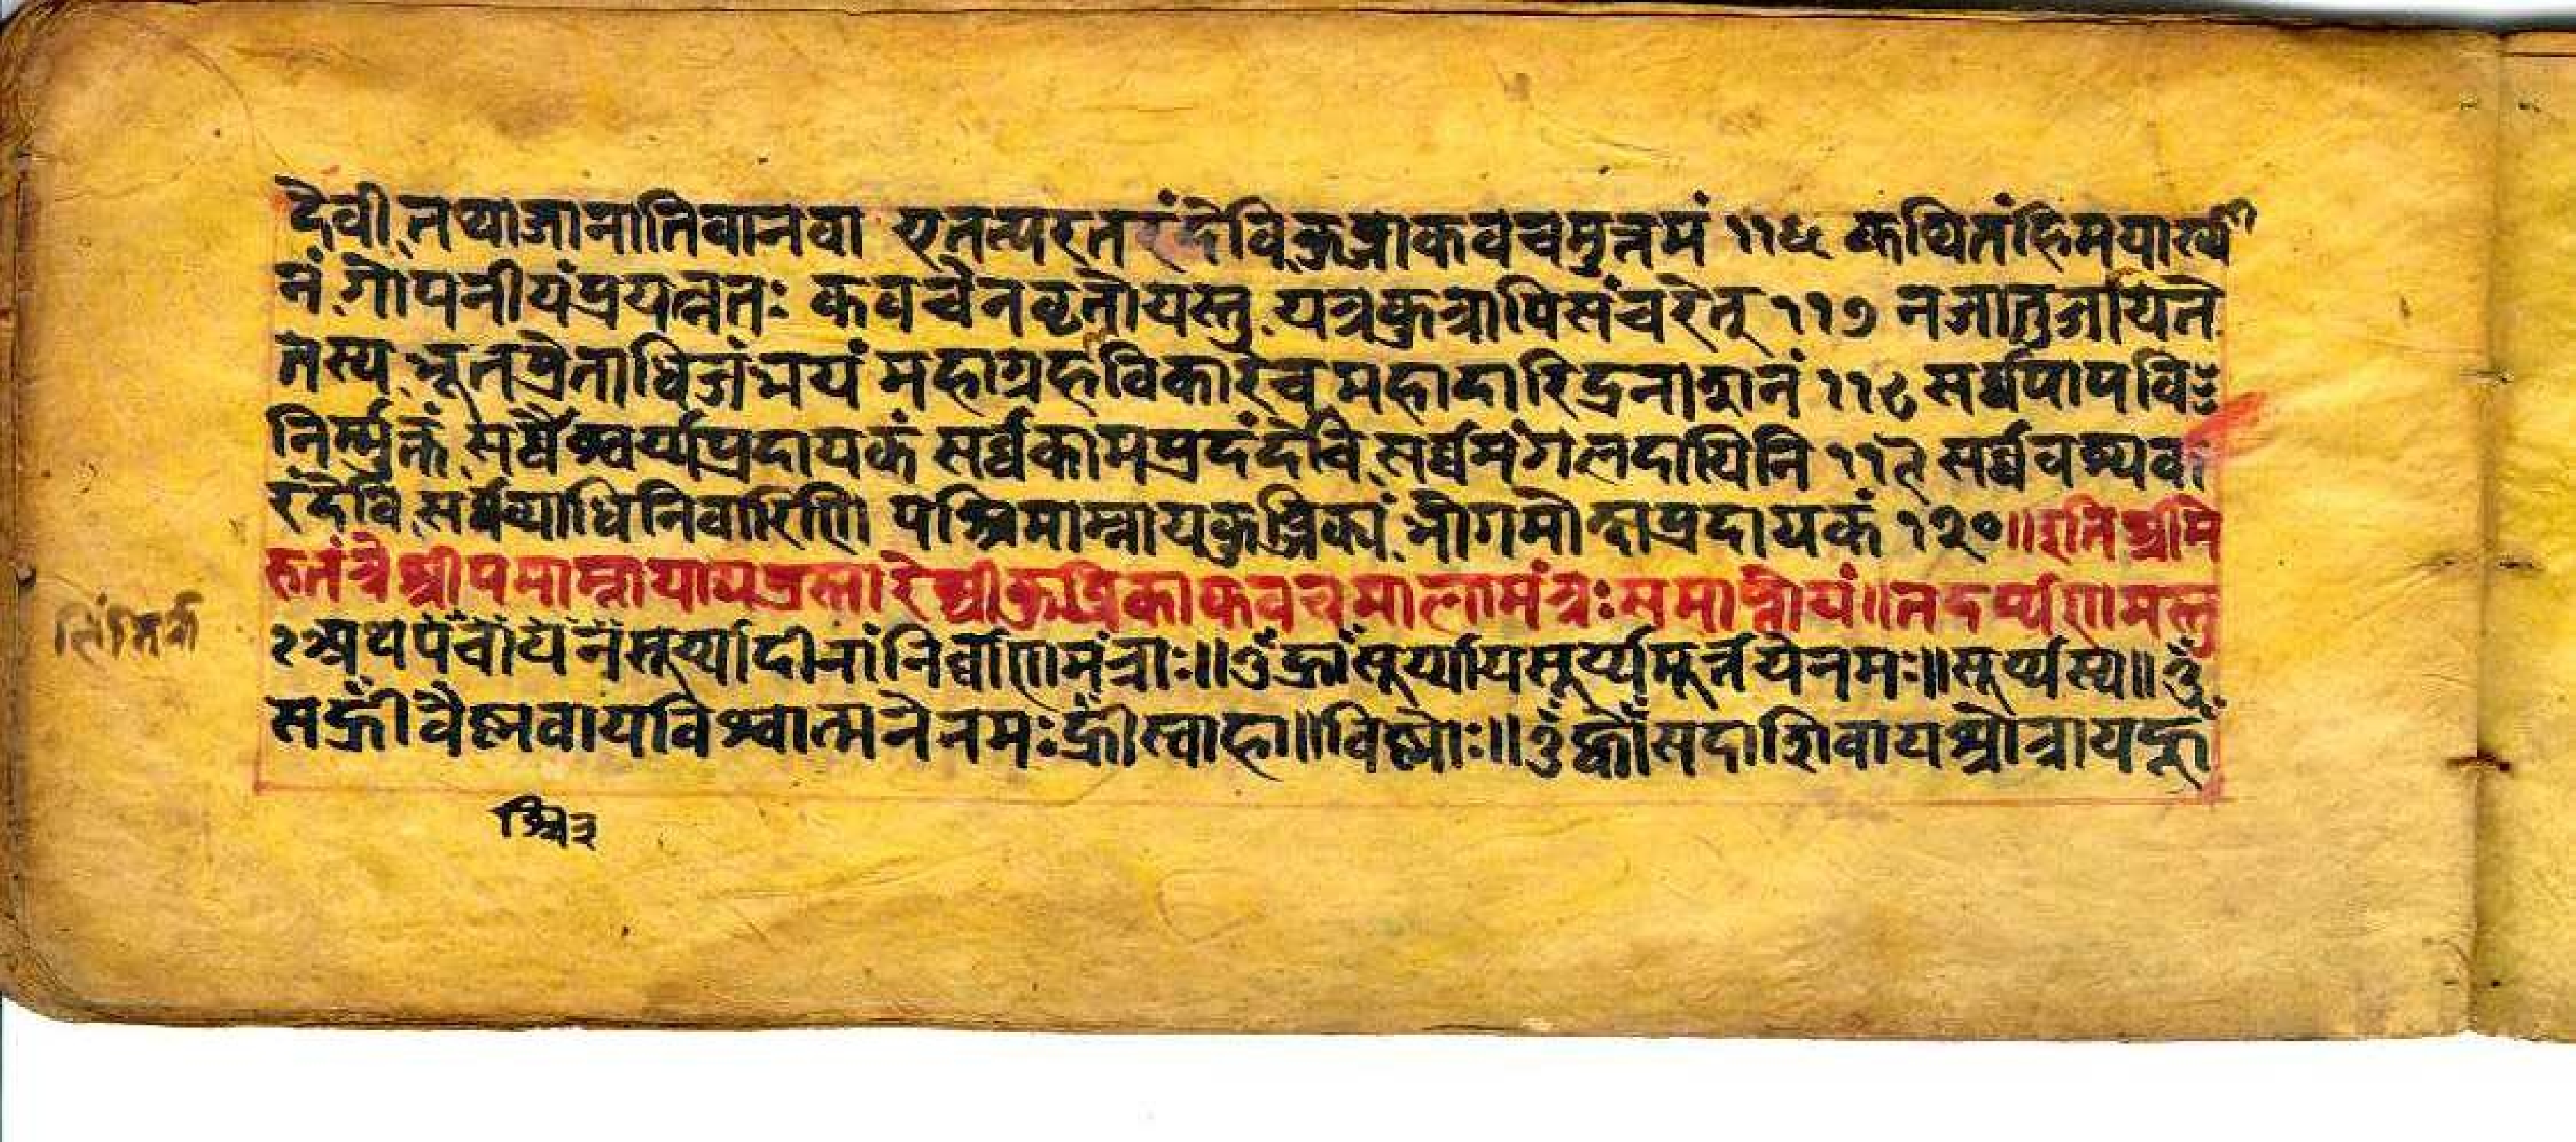 देवी तथाजानातिवानवा एतत्परतरंदेविकुब्जाकवचमुत्तमं ११६ कथितंहिमयाख्या
नं गोपनीयंप्रयत्नतः कवचेनवृतोयस्तु यत्रकुत्रापिसंचरेत् ११७ नजातुजायते
तस्य भूतप्रेताधिजंभयं महाग्रहविकारेच महादारिद्रनाशनं ११८ सर्व्वपापवि
निर्म्मुक्तं सर्व्वैश्वर्य्यप्रदायकं सर्व्वकामप्रदंदेवि सर्व्वमंगलदायिनि ११९ सर्व्ववश्यक
रंदेवि सर्व्वव्याधिनिवारिणि पश्चिमाम्नायकुब्जिकां भोगमोक्षप्रदायकं १२० ॥इतिश्रीमे
रुतंत्रेश्रीपमाम्नायाय श्रीकुब्जिकाकवचमालामंत्रः समाप्तोयं॥तदर्प्पणमस्तु
सूर्य्यादीनांनिर्व्वाणमंत्राः॥ॐह्रांसूर्य्यायसूर्य्यमूर्त्तयेनमः॥सूर्य्यस्य॥ॐ
सह्रींवैष्णवायविश्वात्मनेनमःह्रींस्वाहा॥विष्णोः॥ॐह्रौंसदाशिवायश्रोत्रायह्रूं